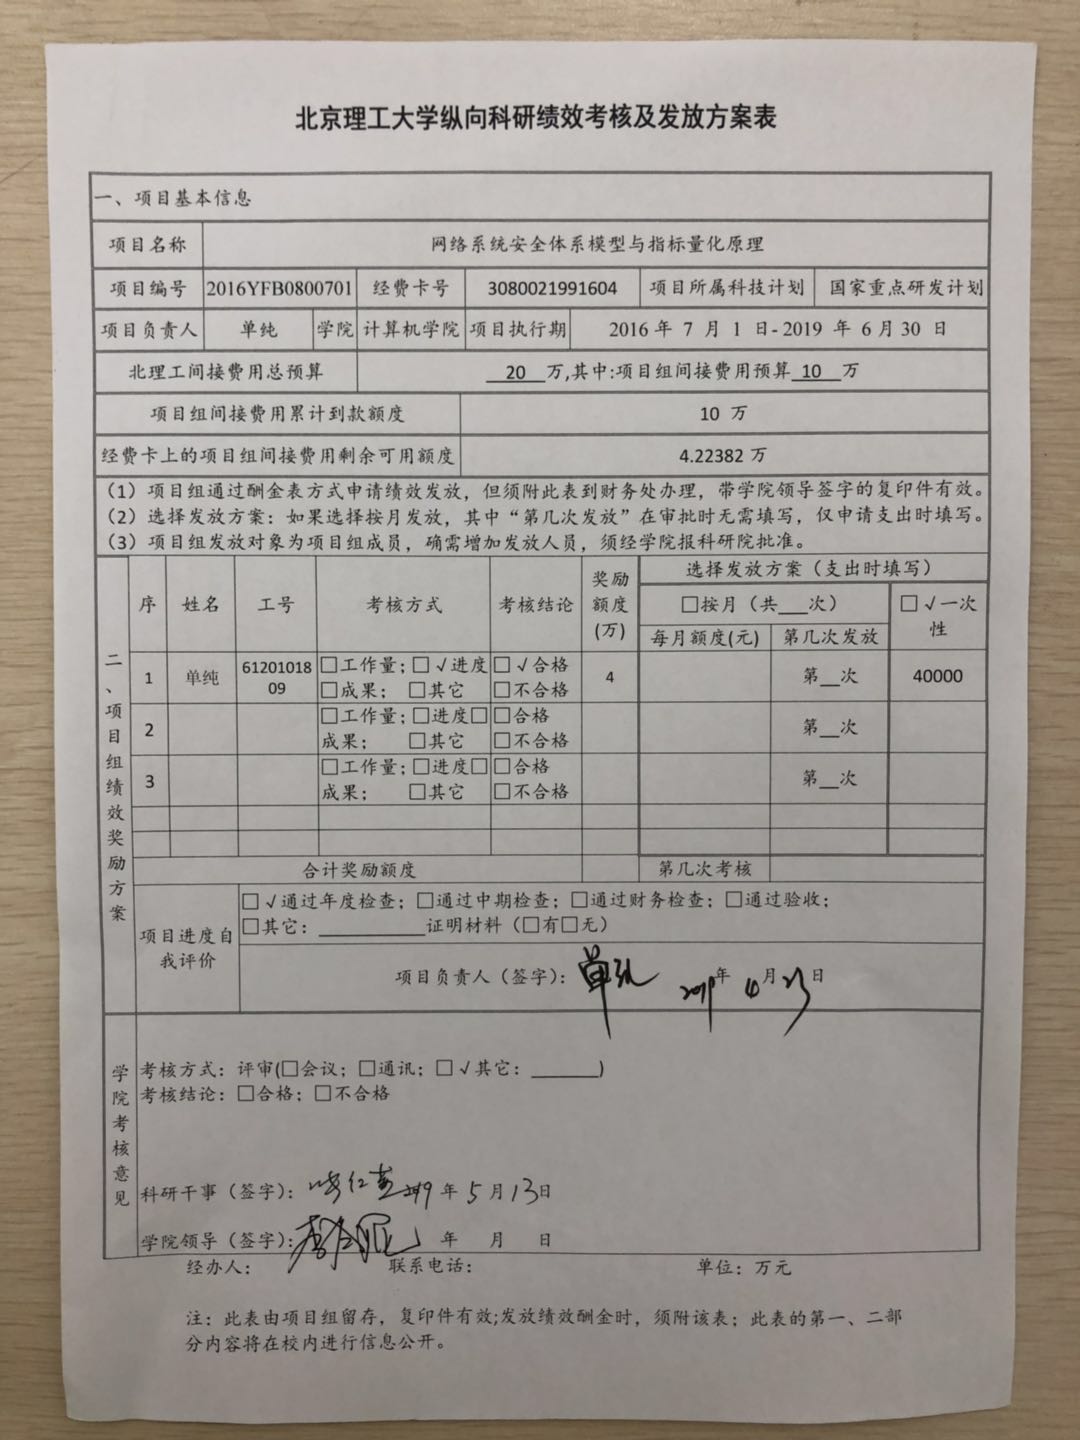 北京理工大学纵向科研绩效考核及发放方案表
一、项目基本信息
项目名称 网络系统安全体系模型与指标量化原理
项目编号 2016YFB0800701 经费卡号 3080021991604 项目所属科技计划 国家重点研发计划
项目负责人 单纯 学院 计算机学院 项目执行期 2016 年 7 月 1 日-2019 年 6 月 30 日
北理工间接费用总预算 20 万,其中:项目组间接费用预算 10 万
项目组间接费用累计到款额度 10 万
经费卡上的项目组间接费用剩余可用额度 4.22382 万
(1) 项目组通过酬金表方式申请绩效发放，但须附此表到财务处办理，带学院领导签字的复印件有效。
(2) 选择发放方案：如果选择按月发放，其中“第几次发放”在审批时无需填写，仅申请支出时填写。
(3) 项目组发放对象为项目组成员，确需增加发放人员，须经学院报科研院批准。
二、项目组绩效奖励方案
序 姓名 工号 考核方式 考核结论 奖励额度(万) 选择发放方案（支出时填写）
□按月（共___次） □√一次性
每月额度(元) 第几次发放
1 单纯 6120101809 □工作量；□√进度 □√合格 4 第__次 40000
□成果； □其它 □不合格
2 □工作量；□进度□ □合格 第__次
成果； □其它 □不合格
3 □工作量；□进度□ □合格 第__次
成果； □其它 □不合格
合计奖励额度 第几次考核
项目进度自我评价
□√通过年度检查；□通过中期检查；□通过财务检查；□通过验收；
□其它：__________证明材料（□有□无）
项目负责人（签字）：单纯 2019年 4 月 23 日
学院考核意见
考核方式：评审(□会议；□通讯；□√其它：______)
考核结论：□合格；□不合格
科研干事（签字）： 2019 年 5 月 13 日
学院领导（签字）： 年 月 日
经办人： 联系电话： 单位：万元
注：此表由项目组留存，复印件有效;发放绩效酬金时，须附该表；此表的第一、二部
分内容将在校内进行信息公开。